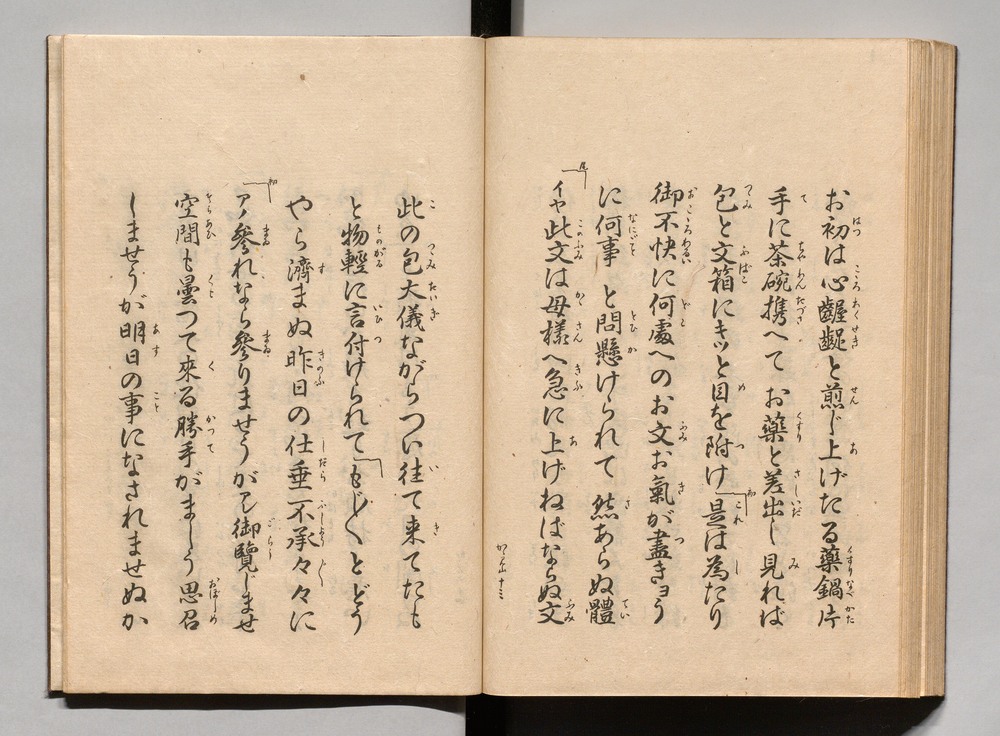 お初は心齷齪と煎じ上げたる藥鍋片
手に茶碗携へて お藥と差出し見れば
包と文箱にキッと目を附け 是は為たり
御不快に何處へのお文お氣が盡きヨう
に何事 と問懸けられて 然あらぬ體
イヤ此文は母樣へ急に上げねばならぬ文
此の包大儀ながらつい往て来てたも
と物輕に言付けられて もじ〱とどう
やら濟まぬ昨日の仕垂 不承々々に
アノ參れなら參りませうが 御覽じませ
空間も曇つて來る勝手がましう思召
しませうが明日の事になされませぬか